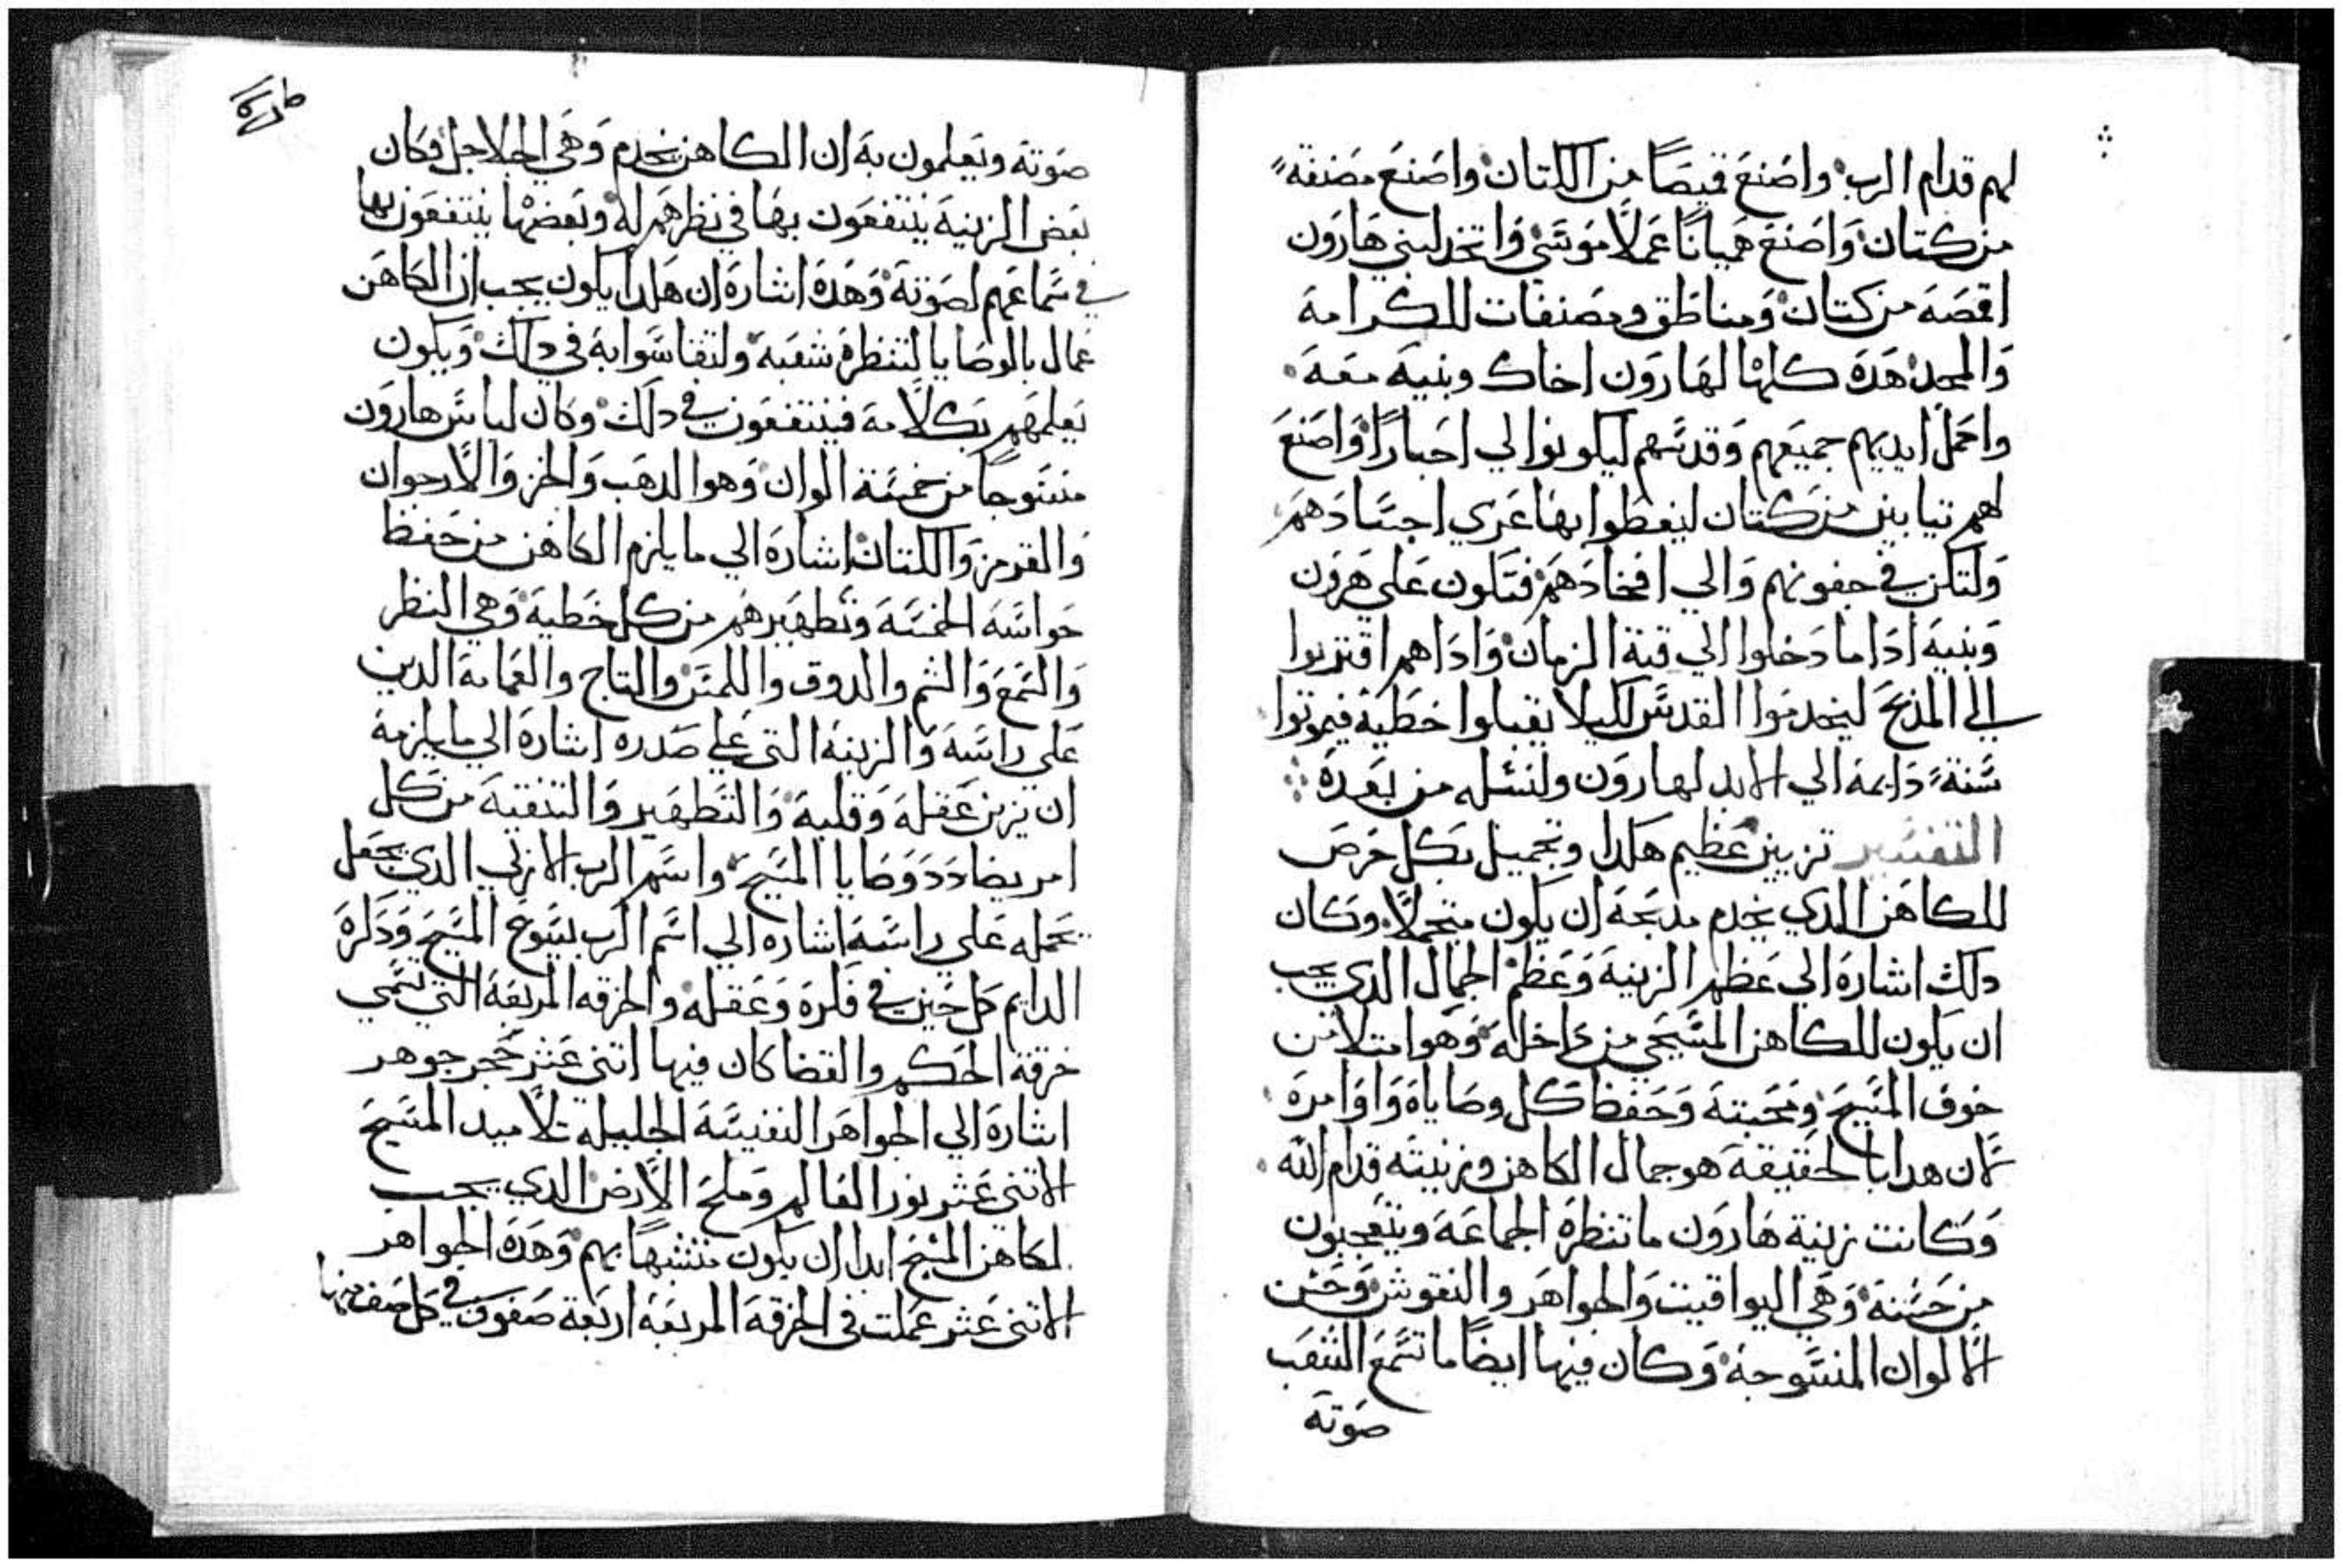 لهم قدام الرب واصنع قميصًا من الكتان واصنع مصنفة
من كتان واصنع هميانًا عملًا موشي واتخد لبني هارون
اقمصة من كتان ومناطق ومصنفات للكرامة
والمجد هده كلها لهارون اخاك وبنيه معه
واحمل ايديهم جميعهم وقدسهم ليكونوا لي احبارًا واصنع
لهم تبابين من كتان ليغطوا بها عري اجسادهم
ولتكن في حقونهم والي افخادهم فتكون علي هرون
وبنيه ادا ما دخلوا الي قبة الزمان وادا هم اقتربوا
الي المذبح ليخدموا القدس لكيلا يقبلوا خطية فيموتوا
سنة دايمة الي الابد لهارون ولنسله من بعده
التفسير تزيين عظيم هكدا وتجميل بكل حرص
للكاهن الدي يخدم مدبحه ان يكون متجملًا وكان
دلك اشارة الي عظم الزينة وعظم الجمال الدي يجب
ان يكون للكاهن المسيحي من داخله وهو امتلا من
خوف المسيح ومحبته وحفظ كل وصاياه واوامره
لان هدا بالحقيقة هو جمال الكاهن وزينته قدام الله
وكانت زينة هارون ما تنظره الجماعة ويتعجبون
من حسنه وهي اليواقيت والجواهر والنقوش وحسن
الالوان المنسوجة وكان فيها ايضًا ما تسمع الشعب
صوته
صوته ويعلمون به ان الكاهن يخدم وهي الجلاجل فكان
بعض الزينة ينتفعون بها في نظرهم له وبعضها ينتفعون بها
في سماعهم لصوته وهده اشارة ان هكدا يكون يجب ان الكاهن
عمال بالوصايا لتنظره شعبه ولتقاسوا به في دلك ويكون
يعلمهم بكلامه فينتفعون في دلك وكان لباس هارون
منسوجًا من خمسة الوان وهو الدهب والخز والارجوان
والقرمز والكتان اشارة الي ما يلزم الكاهن من حفظ
حواسه الخمسة وتطهيرهم من كل خطية وهي النظر
والسمع والشم والدوق واللمس والتاج والعمامة الدين
علي راسه والزينة التي علي صدره اشارة الي ما يلزمه
ان يزين عقله وقلبه والتطهير والتنقية من كل
امر يضادد وصايا المسيح واسم الرب الازلي الدي يجعل
يحمله علي راسه اشاره الي اسم الرب يسوع المسيح ودكره
الدايم كل حين في فكره وعقله والخرقه المربعة التي تسمي
خرقة الحكم والقضا كان فيها اتني عشر حجر جوهر
اشارة الي الجواهر النفيسة الجليله تلاميد المسيح
الاتني عشر نور العالم وملح الارض الدي يجب
لكاهن المسيح ابدا ان يكون متشبهًا بهم وهده الجواهر
الاتني عشر عملت في الخرقة المربعة اربعة صفوف في كل صف منها